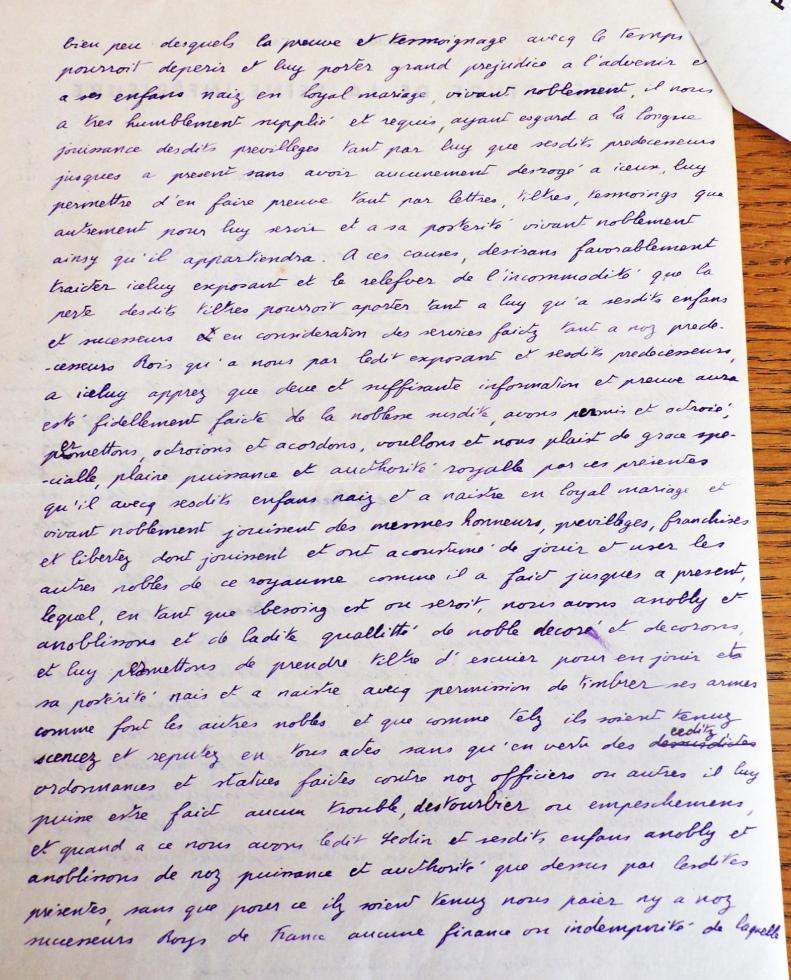 bien peu desquels la preuve et tesmoignage avecq le temps
pourroit deperir et luy porter grand prejudice a l'advenir et
a ses enfans naiz en loyal mariage, vivant noblement, il nous
a tres humblement supplié et requis, ayant esgard a la longue
jouissance desdits previlleges tant par luy que sesdits predecesseurs
jusques a present sans avoir aucunement desrogé a iceux, luy
permettre d'en faire preuve tant par lettres, tiltres, tesmoings que
autrement pour luy servir et a sa posterité vivant noblement
ainsy qu'il appartiendra. A ces causes, desirans favorablement
traicter iceluy exposant et le relefver de l'incommodité que la
perte desdits tiltres pourroit aporter tant a luy qu'a sesdits enfans
et successeurs et en consideration des services faictz tant a noz prede-
-cesseurs Rois qu'a nous par ledit exposant et sesdits predecesseurs,
a iceluy apprez que deue et suffisante information et preuve aura
esté fidellement faicte de la noblesse susdite, avons permis et octroié,
permettons, octroions et acordons, voullons et nous plaist de grace spe-
-cialle, plaine puissance et aucthorité royalle par ces présentes
qu'il avecq sesdits enfans naiz et a naistre en loyal mariage et
vivant noblement jouissent des mesmes honneurs, previlleges, franchises
et libertez dont jouissent et ont acoustumé de jouir et user les
autres nobles de ce royaume comme il a faict jusques a present,
lequel, en tant que besoing est ou seroit, nous avons anobly et
anoblissons et de ladite quallitté de noble decoré et decorons,
et luy permettons de prendre tiltre d'escuier pour en jouir et
sa postérité nais et a naistre avecq permission de timbrer ses armes
comme font les autres nobles et que comme telz ils soient tenuz
scencez et reputez en tous actes sans qu'en vertu des desusdictes ceditz
ordonnances et statues faictes contre noz officiers ou autres il luy
puisse estre faict aucun trouble, destourbier ou empeschemens,
et quand a ce nous avons ledit Yedin et sesdits enfans anobly et
anoblissons de noz puissance et aucthorité que dessus par lesdites
présentes, sans que pour ce ilz soient tenuz nous paier ny a noz
successeurs Roys de France aucune finance ou indempnité de laquelle